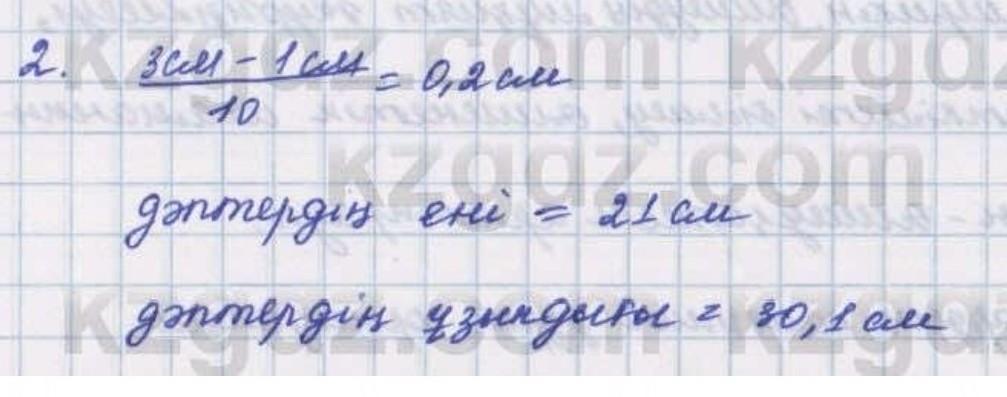 2. 3см - 1см / 10 = 0,2 см
дәптердің ені = 21 см
дәптердің ұзындығы = 30,1 см
kzgdz.com kzgdz
kzgdz.com
kzgdz.com kzgdz